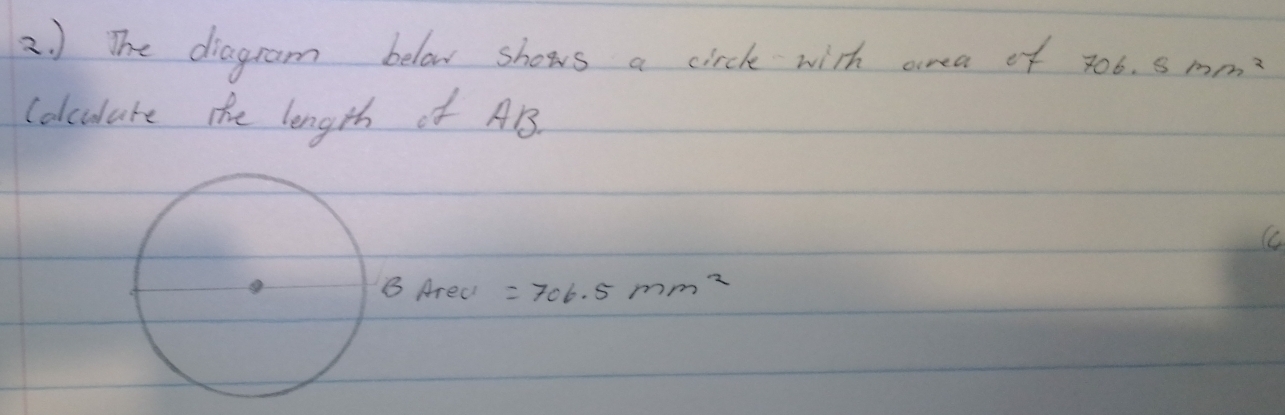 2.) The diagram below shows a circle with area of 706.5 mm²
Calculate the length of AB.
B Area = 706.5 mm²